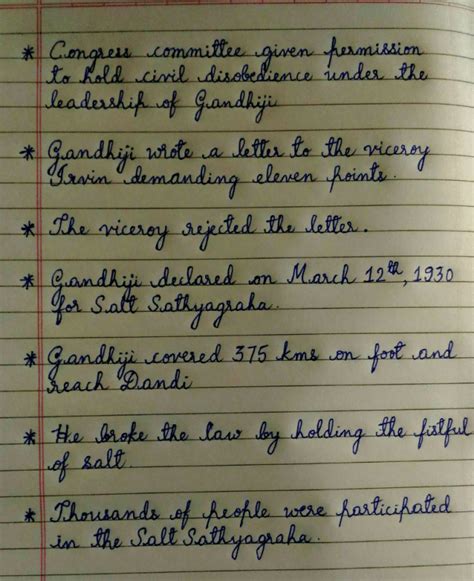 * Congress committee given permission
to hold civil disobedience under the
leadership of Gandhiji
* Gandhiji wrote a letter to the viceroy
Irvin demanding eleven points.
* The viceroy rejected the letter.
* Gandhiji declared on March 12th, 1930
for Salt Sathyagraha.
* Gandhiji covered 375 kms on foot and
reach Dandi
* He broke the law by holding the fistful
of salt.
* Thousands of people were participated
in the Salt Sathyagraha.